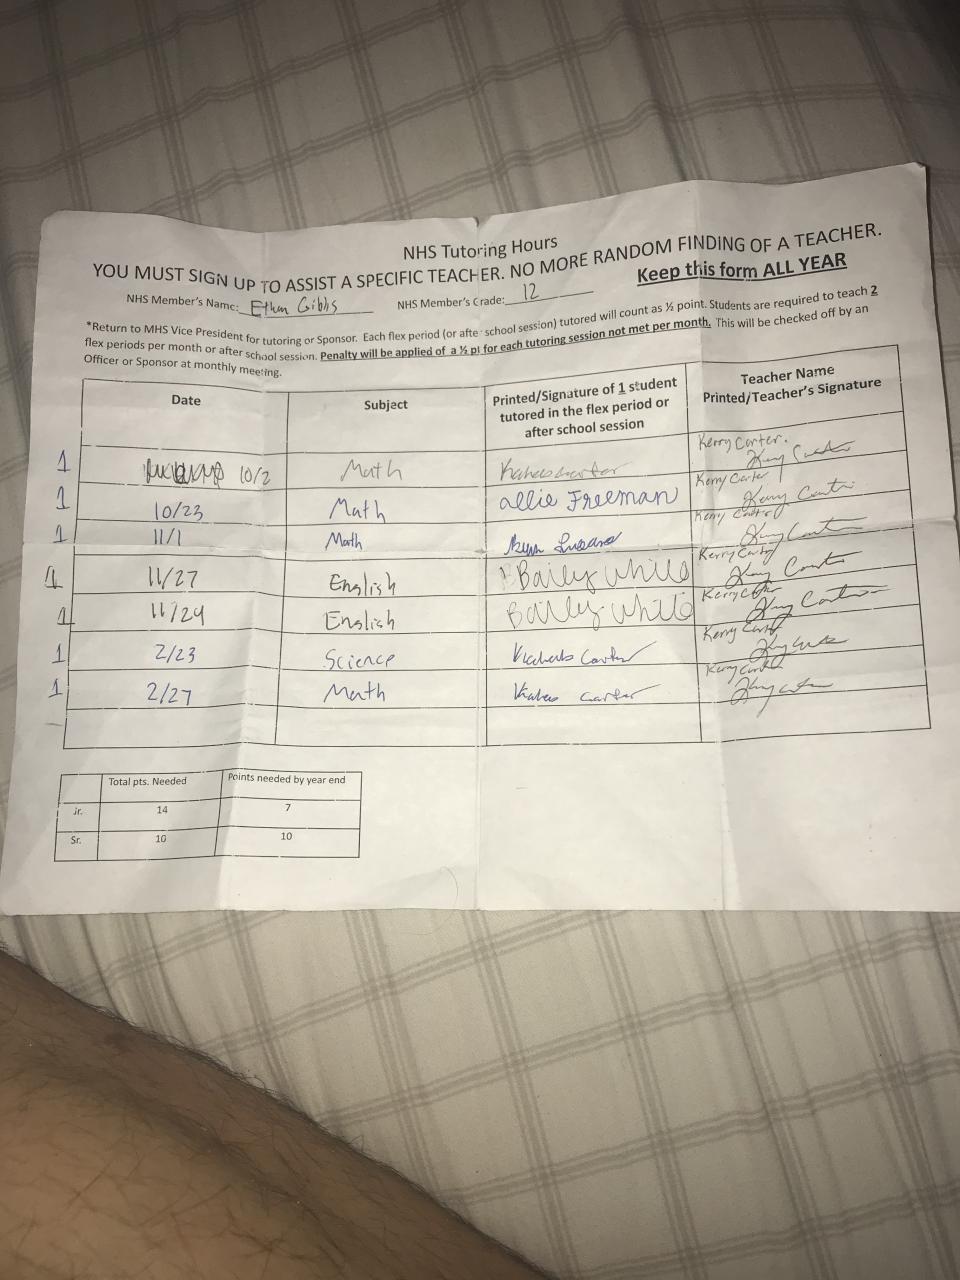 NHS Tutoring Hours
YOU MUST SIGN UP TO ASSIST A SPECIFIC TEACHER. NO MORE RANDOM FINDING OF A TEACHER.
NHS Member's Name: Ethan Gibbs NHS Member's Grade: 12 Keep this form ALL YEAR
*Return to MHS Vice President for tutoring or Sponsor. Each flex period (or after school session) tutored will count as ½ point. Students are required to teach 2
flex periods per month or after school session. Penalty will be applied of a ½ pt for each tutoring session not met per month. This will be checked off by an
Officer or Sponsor at monthly meeting.
Date Subject Printed/Signature of 1 student tutored in the flex period or after school session Teacher Name Printed/Teacher's Signature
1 10/2 Math Carter Kerry Carter.
1 10/23 Math allie Freeman Kerry Carter Kerry Carter
1 11/1 Math Kerry Carter Kerry Carter
1 11/27 English Baily White Kerry Carter Kerry Carter
1 11/29 English Baily White Kerry Carter Kerry Carter
1 2/23 Science Carter Kerry Carter
1 2/27 Math Carter Kerry Carter
Total pts. Needed Points needed by year end
Jr. 14 7
Sr. 10 10